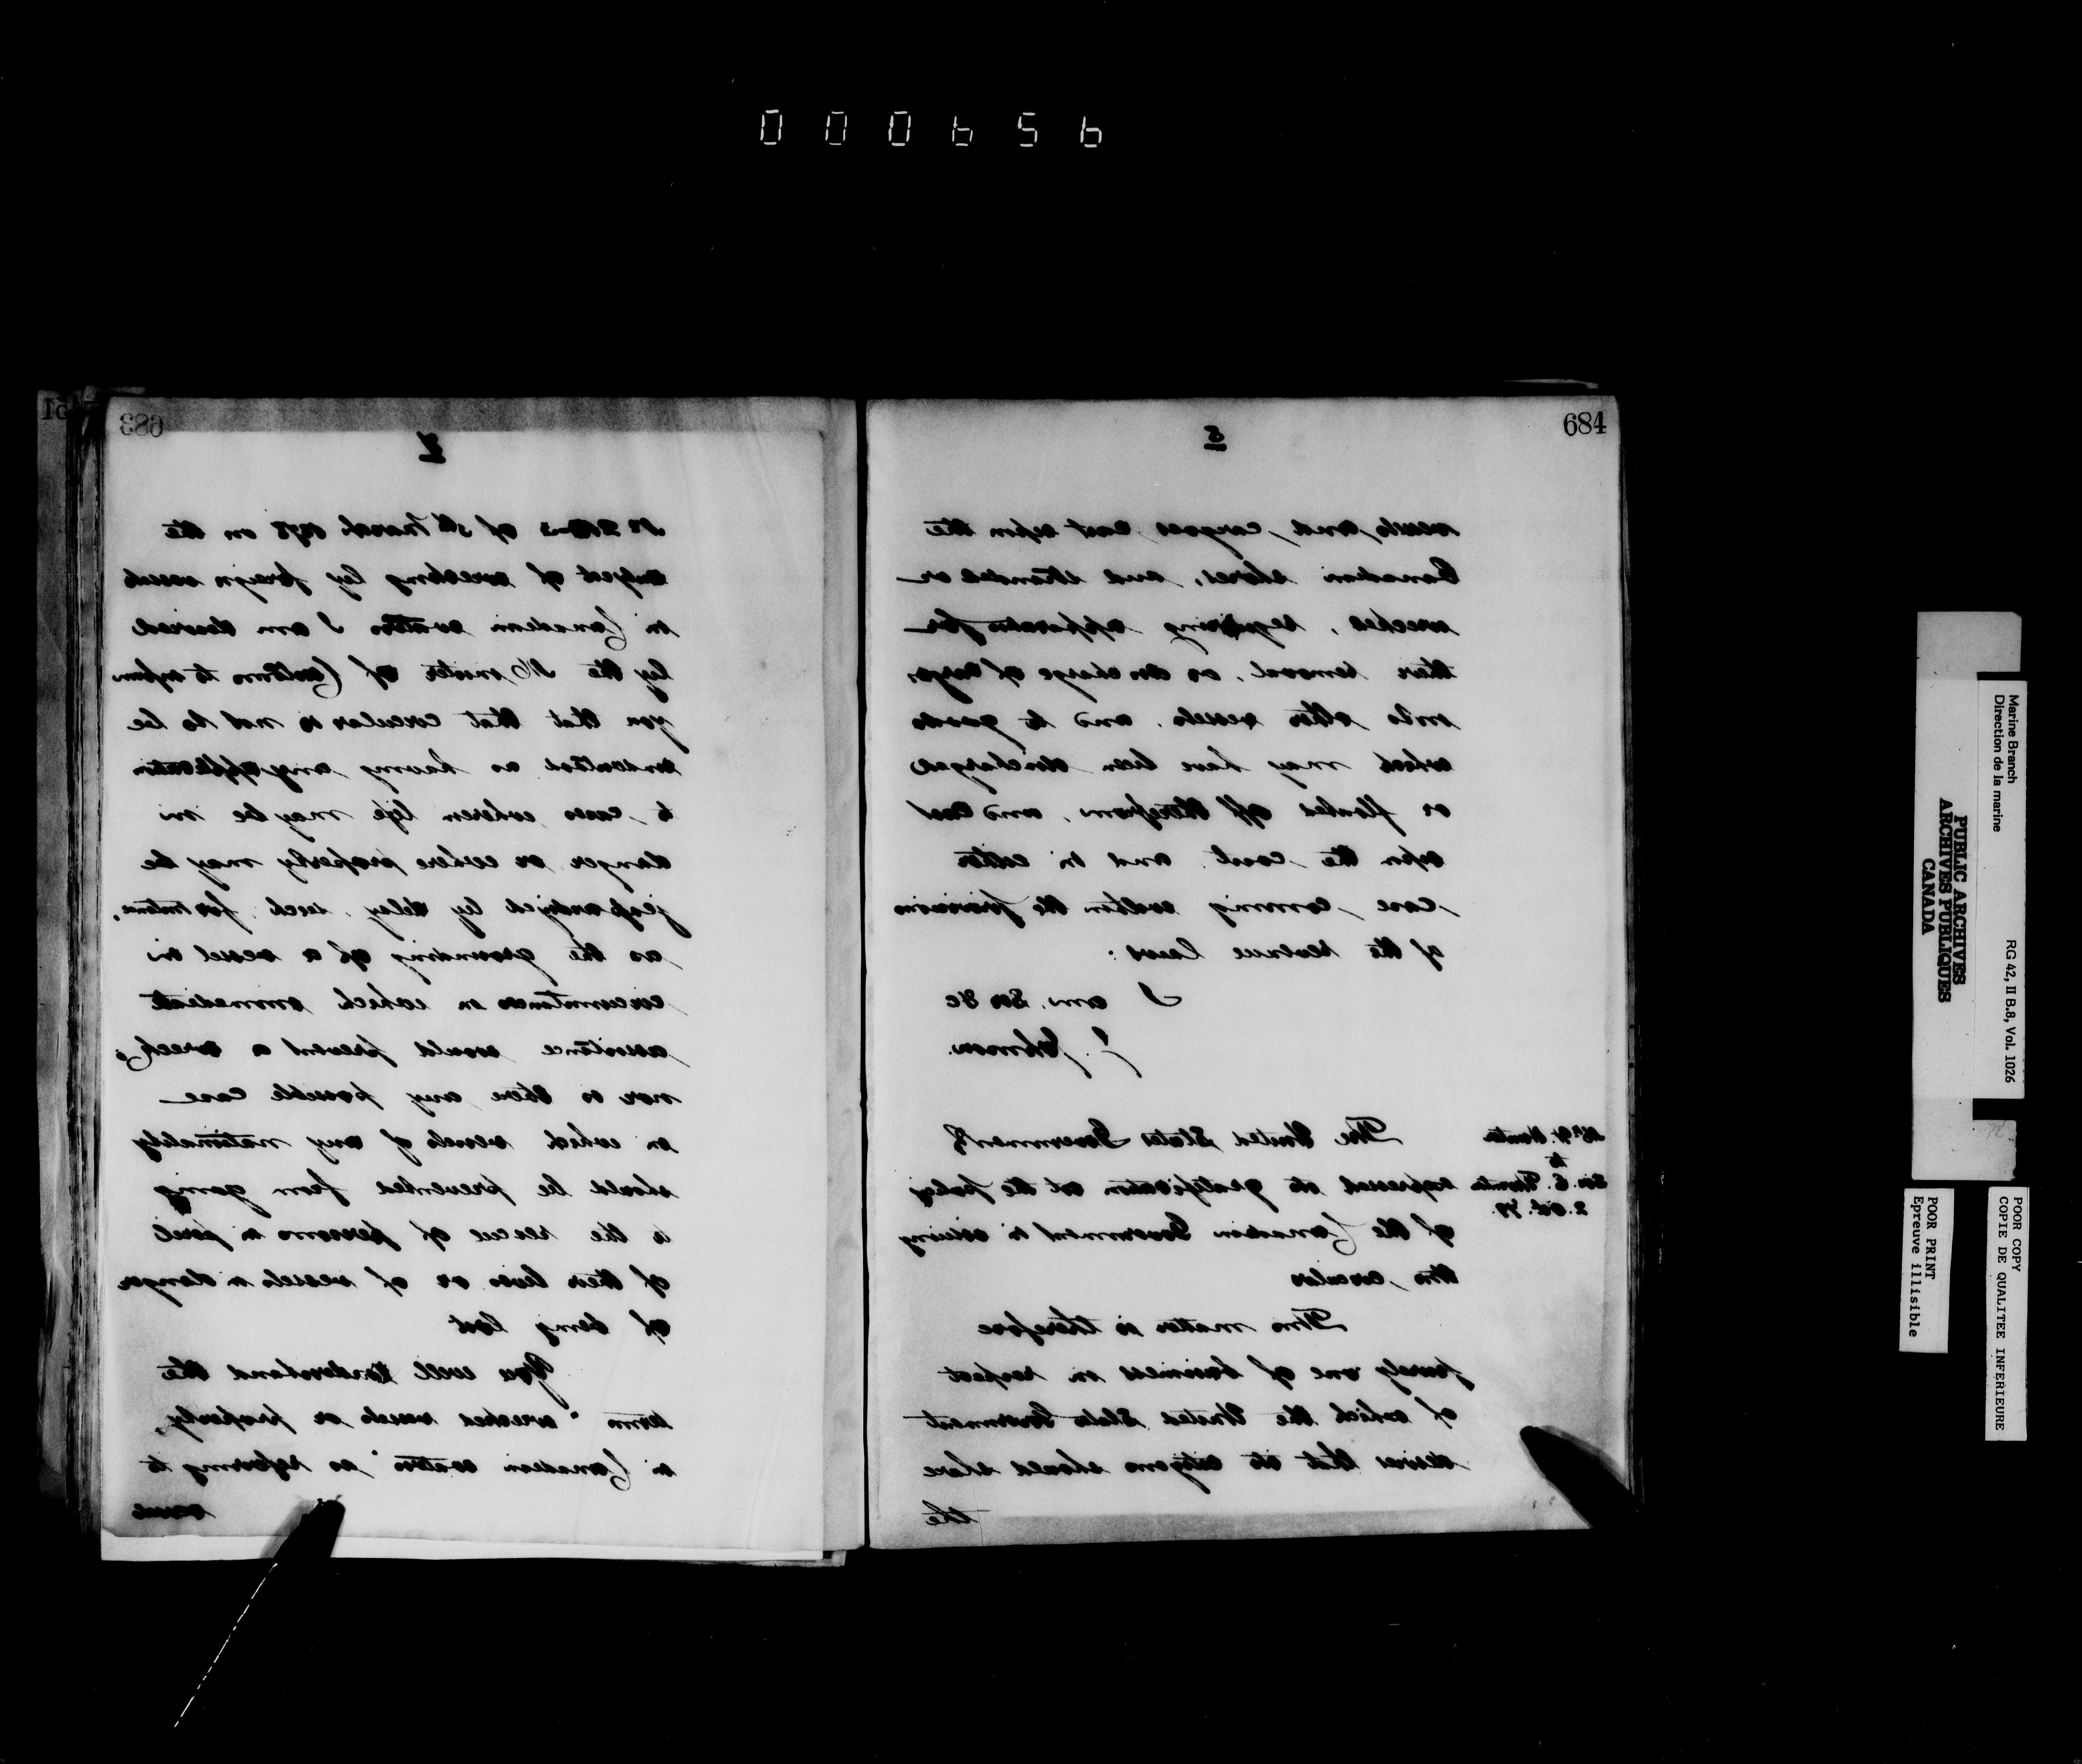 000656
683
7
of 5th March 1878 on the
subject of wrecking by foreign vessels
in Canadian waters I am desired
by the Minister of Customs to inform
you that that circular is not to be
understood as having any application
to cases where life may be in
danger or where property may be
jeopardized by delay, such, for instance,
as the grounding of a vessel in
circumstances in which immediate
assistance would prevent a wreck,
nor is there any possible case
in which vessels of any nationality
should be prevented from going
to the rescue of persons in peril
of their lives or of vessels in danger
of being lost
You will understand the
term "wrecked vessels or property,
in Canadian waters" as referring to
684
8
vessels and cargoes cast upon the
Canadian shores, and stranded or
wrecked, requiring apparatus for
their removal, or discharge of cargo
into other vessels, and to goods
which may have been discharged
or floated off therefrom, and cast
upon the coast, and in either
case coming within the provisions
of the revenue laws:
I am, Sir &c
J. Johnson.
Mr. W. Hunter
to
Sir E. Thornton
2. Oct. 79.
The United States Government
expressed its gratification at the policy
of the Canadian Government in issuing
this circular
This matter is therefore
purely one of business in respect
of which the United States Government
desires that its citizens should share
the
Marine Branch
Direction de la marine
RG 42, II B.8, Vol. 1026
PUBLIC ARCHIVES
ARCHIVES PUBLIQUES
CANADA
POOR COPY
COPIE DE QUALITEE INFERIEURE
POOR PRINT
Epreuve illisible